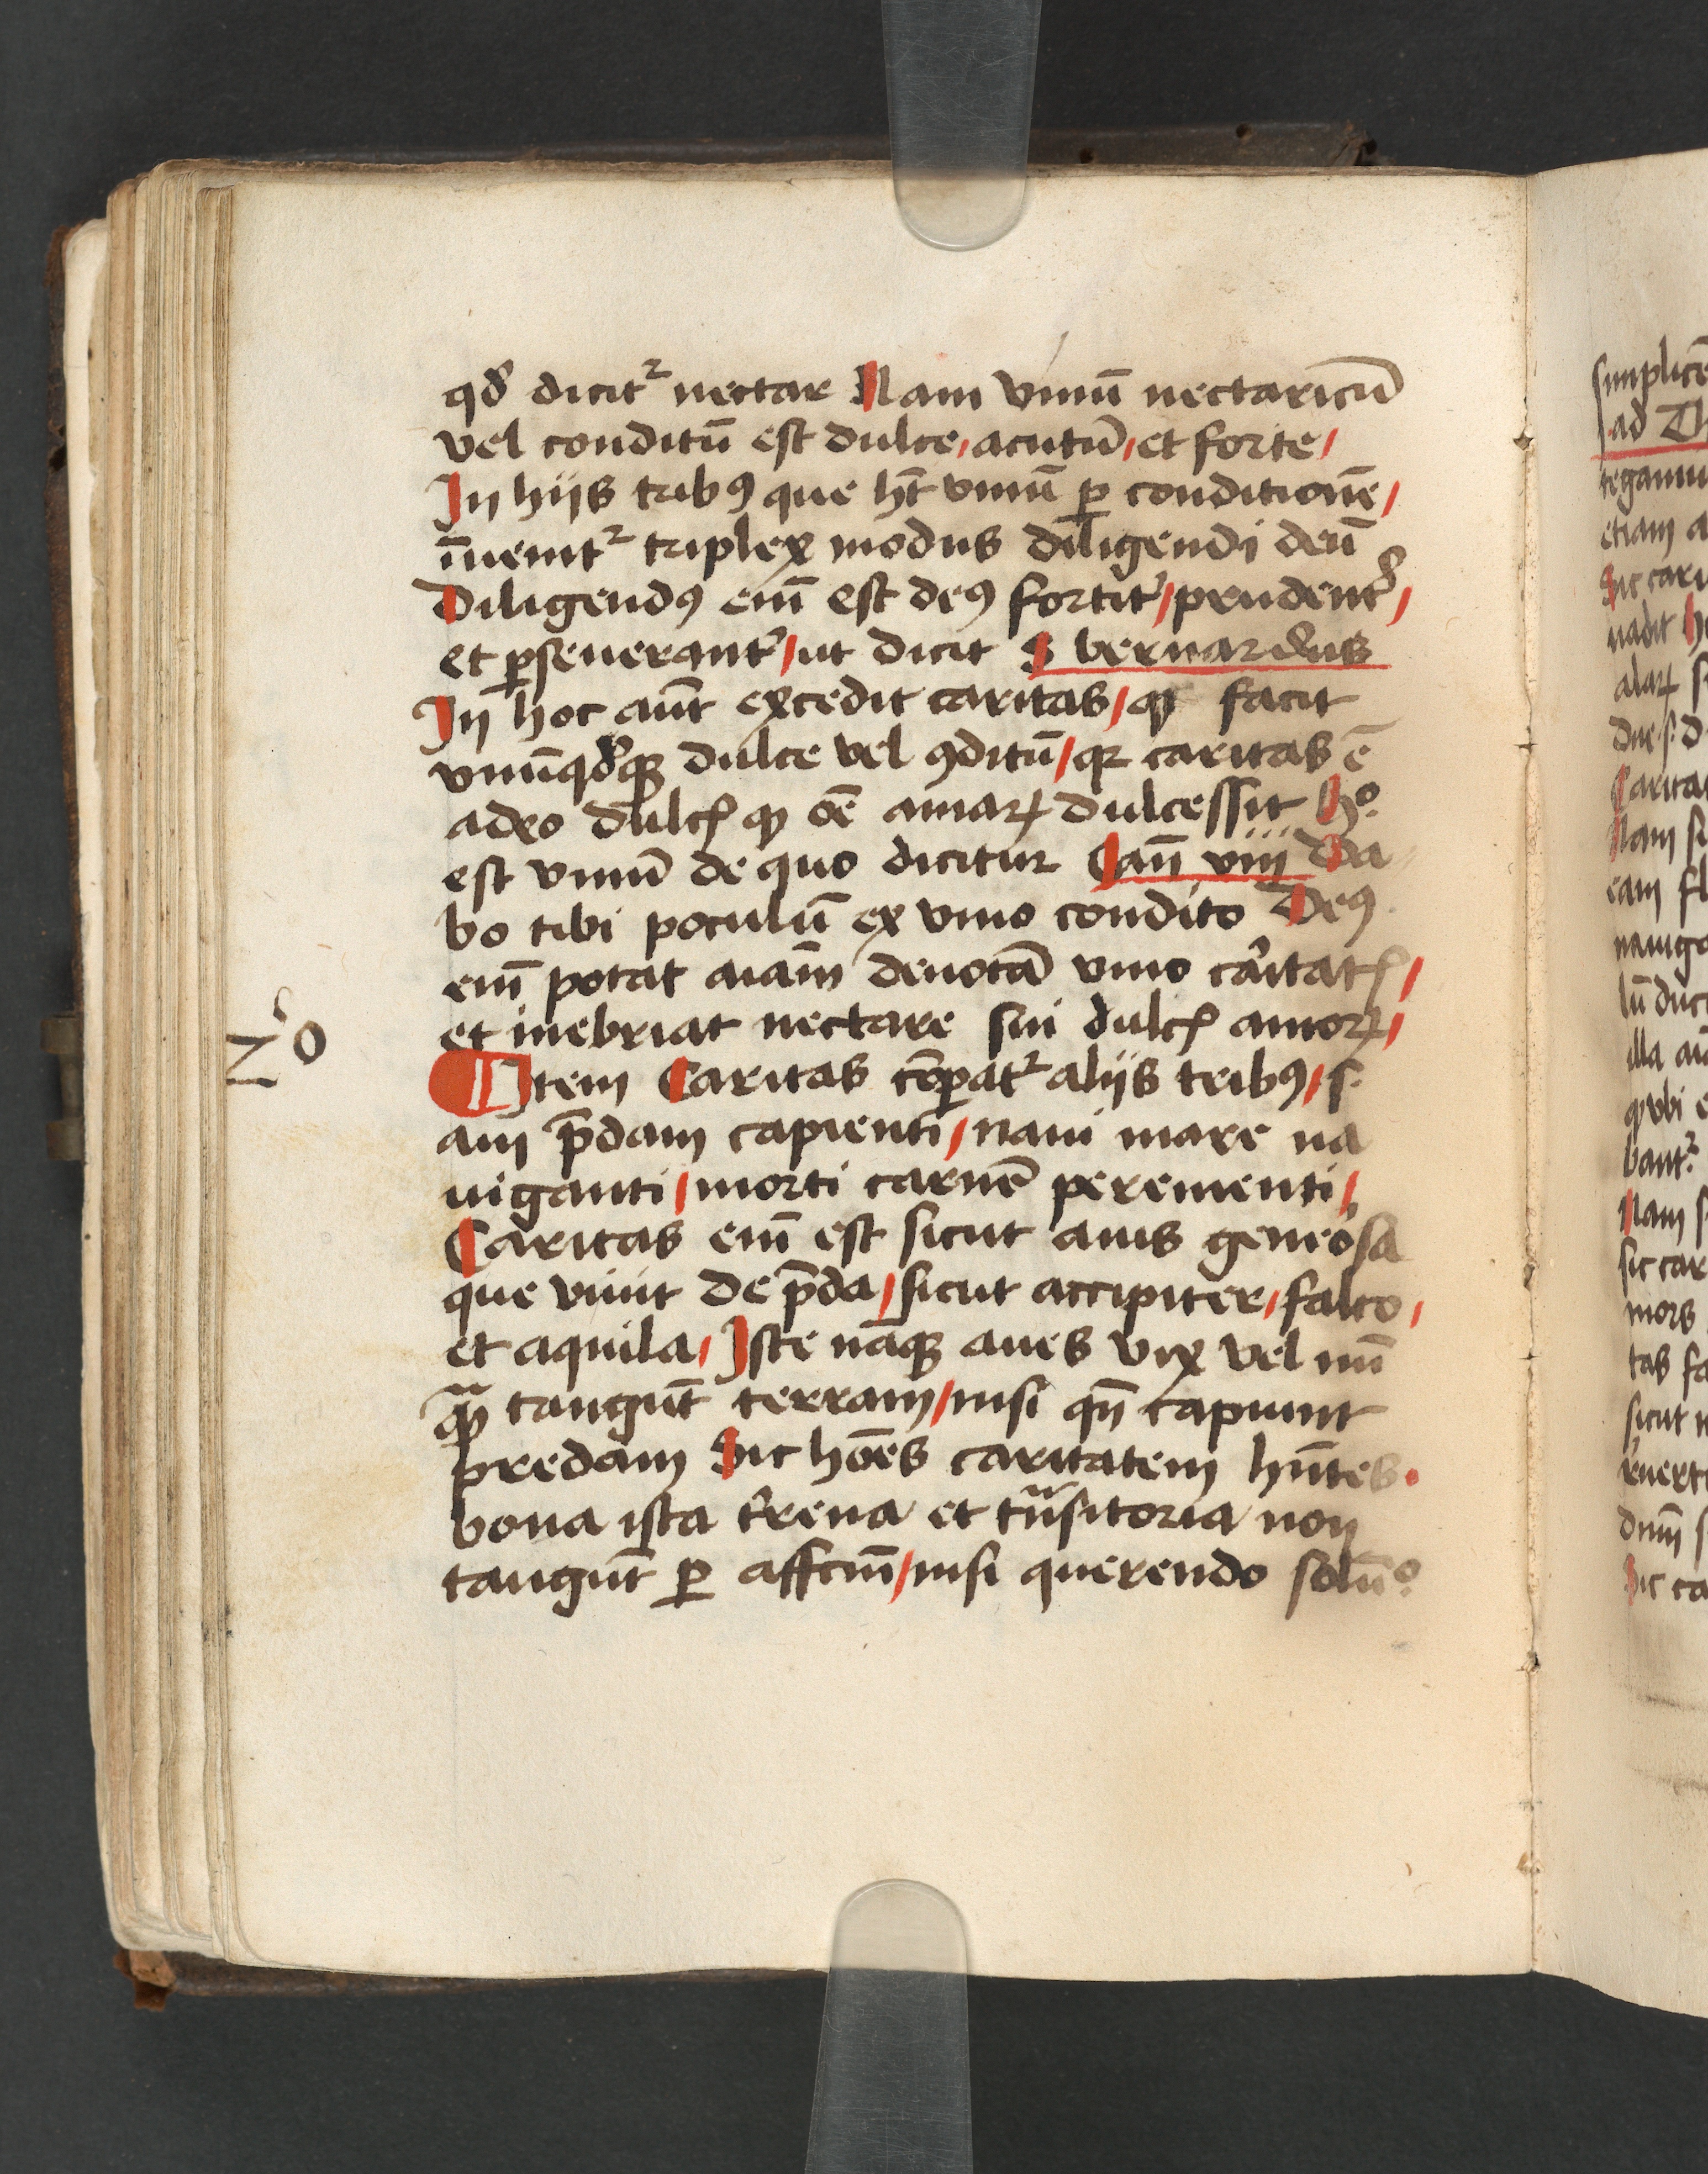 qd̕ dicitᷣ nectar Nam vinū nectaricū
vel conditū est dulce / acutū / et forte /
In hijs tribꝰ que hn̄t vinū ꝑ conditionē /
īuenitᷣ triplex modus diligendi deū
Diligendꝰ eni̅ est deꝰ fortit̕ / prudent̕ /
et ꝑseuerant̕ / ut dicit S bernardus
In hoc aūt excedit caritas / ꝙ facit
vnūqd̕qꝫ dulce vel ꝯditū / qꝛ caritas ē
adeo dulcꝭ ꝙ oē amaꝝ dulcessit Hº
est vinū de quo dicitur Can̄ viij Da
bo tibi poculū ex vino condito Deꝰ
eni̅ potat aiam̄ deuotā vino caritatꝭ /
et inebriat nectare sui dulcꝭ amoꝝ /
Nº
Item Caritas cōparatᷣ alijs tribꝰ / s.
aui p̄dam capienti / naui mare na
uiganti / morti carnē perementi /
Caritas eni̅ est sicut auis generosa
que viuit de p̄da / sicut accipiter / falco /
et aquila / Iste nāqꝫ aues vix vel nū
qᷓꝫ tangūt terram / nisi qn̄ capiunt
predam Sic hoēs caritatem hn̄tes.
bona ista t̕rena et tᷓnsitoria non
tangūt ꝑ affcm̄ / nisi querendo solūº
simplicē
ad
etiam
Sic cari
nadit
Carita
Nam si
eam
nauiga
illa
qͥ vbi
bantᷣ
Nam
sic car
mors
tas fa
sicut
Sic ca